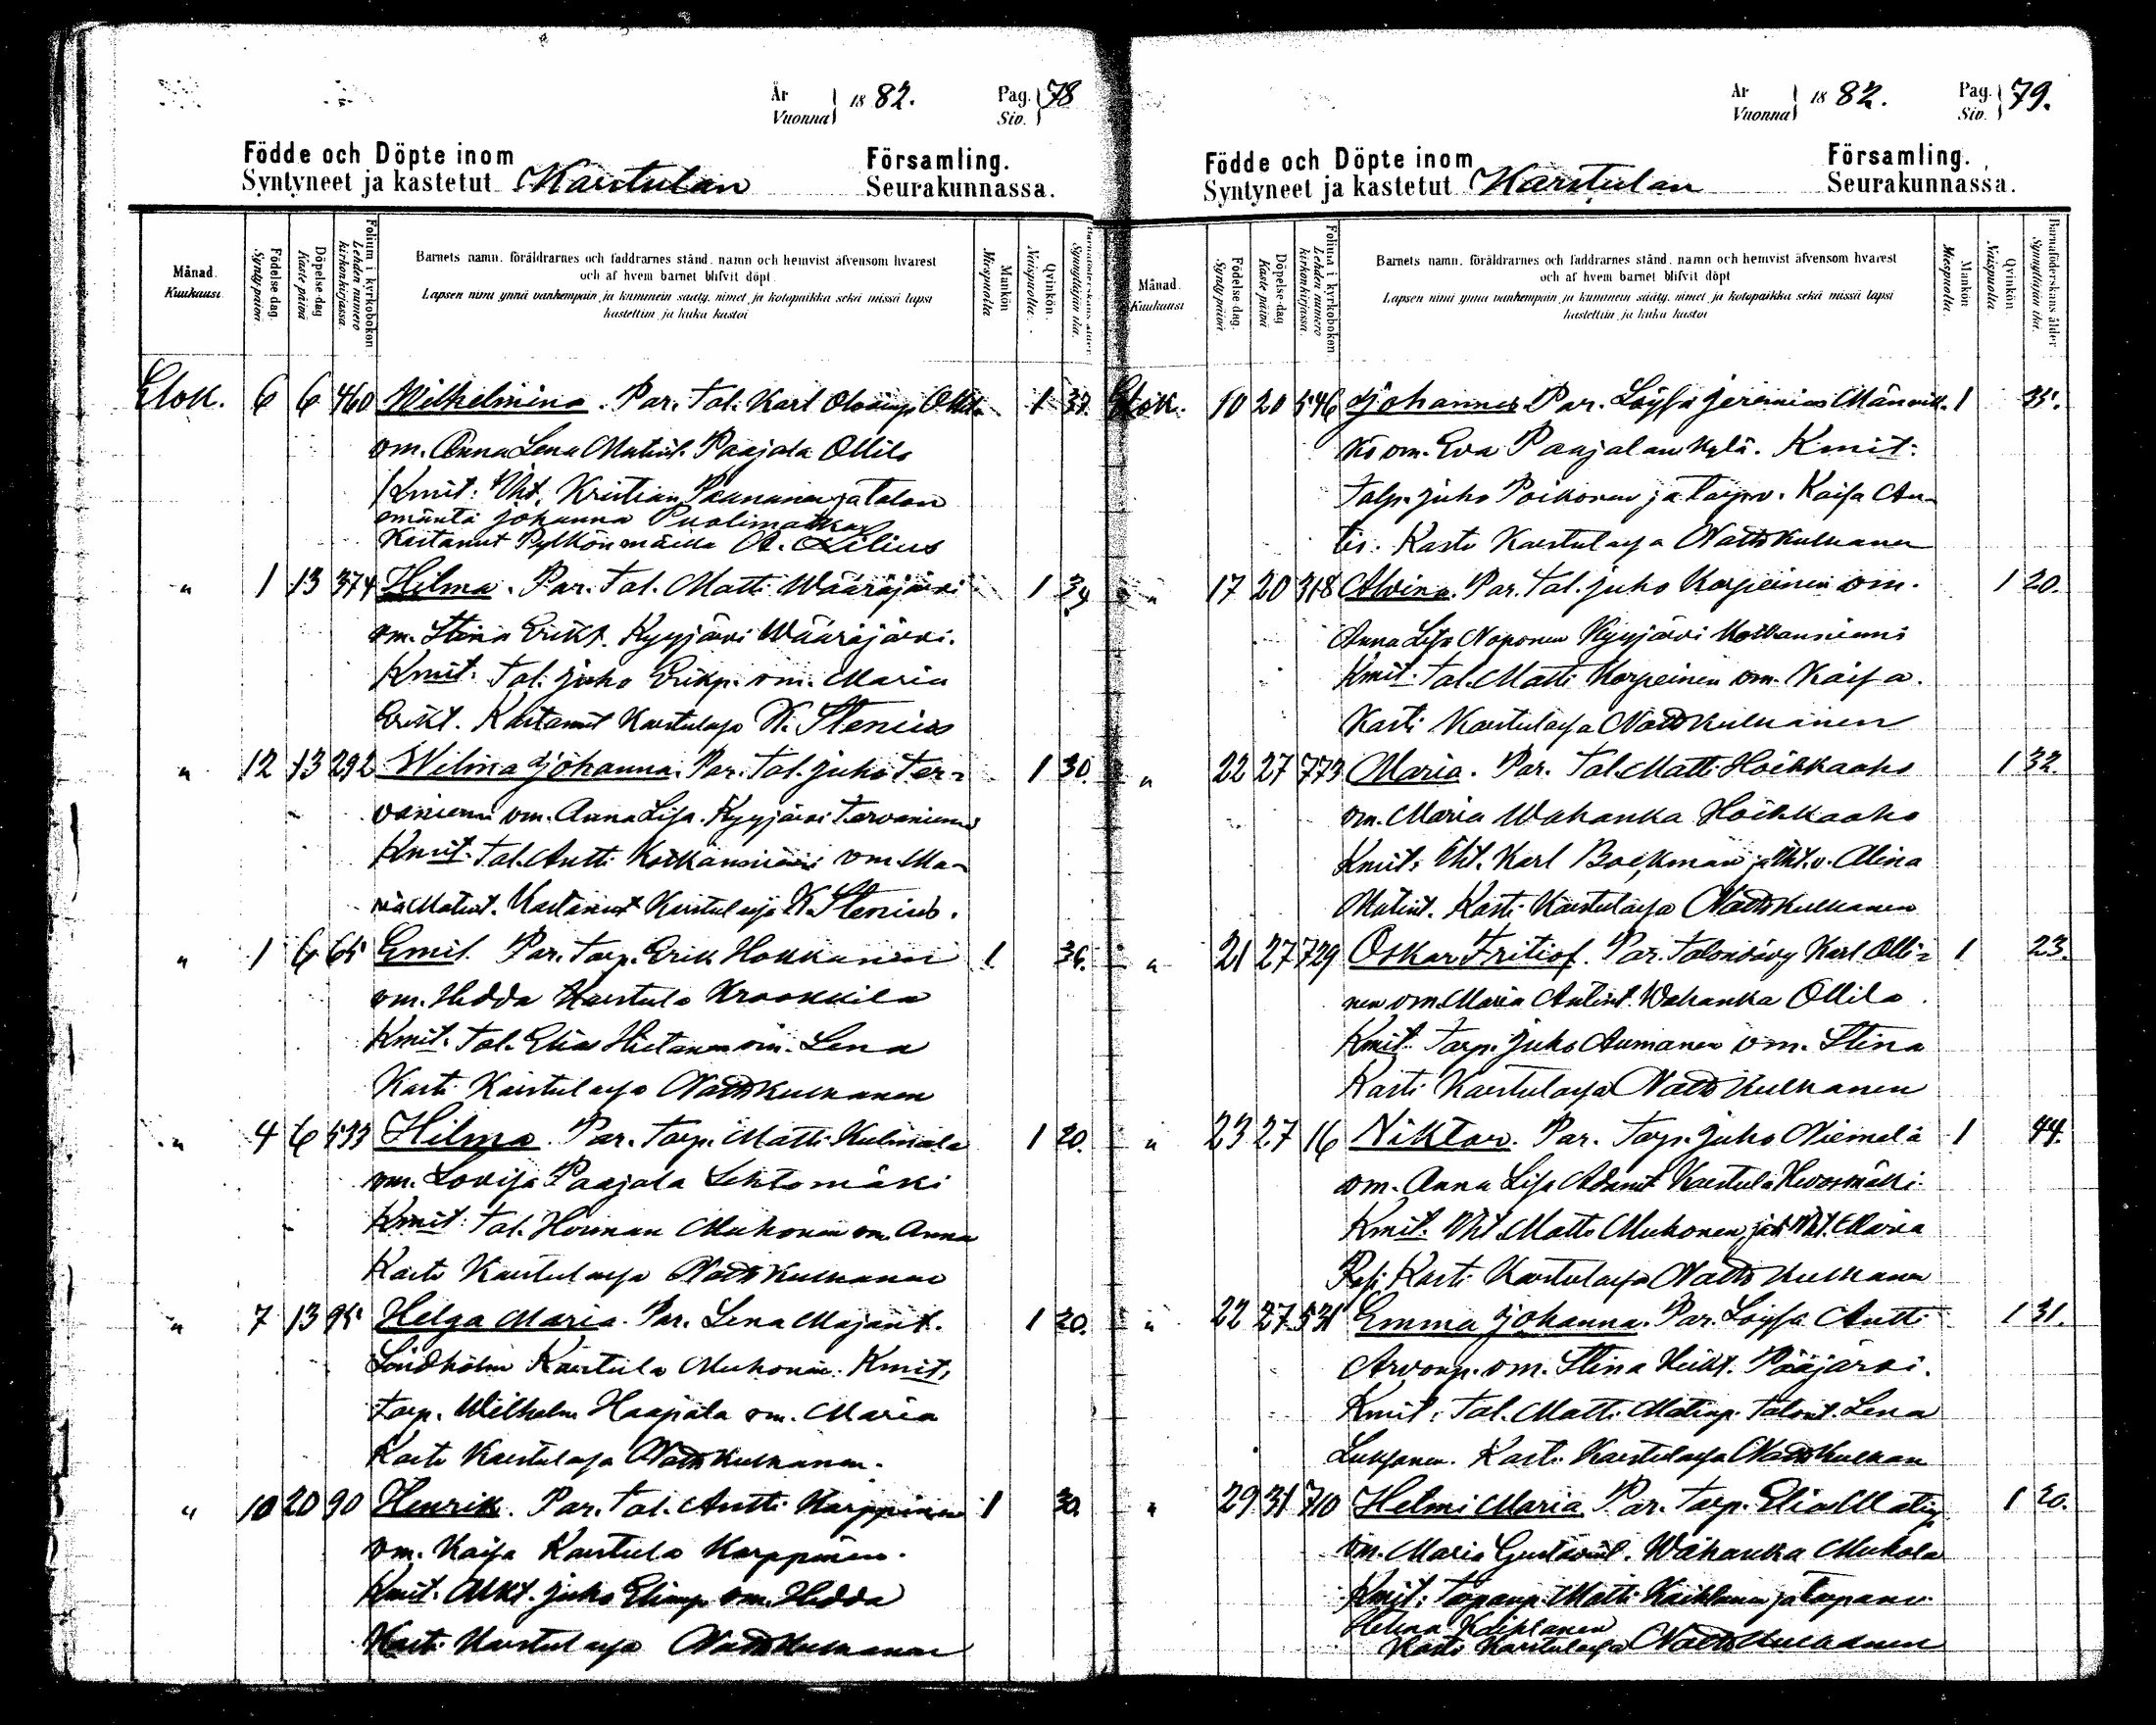 År
Vuonna 1882.
Pag.
Siv. 78
Födde och Döpte inom Församling.
Syntyneet ja kastetut Karstulan Seurakunnassa.
Månad.
Kuukausi
Födelse-dag.
Syntypäivä
Döpelse-dag
Kaste-päivä
Folium i kyrkoboken
Lehden numero kirkonkirjassa.
Barnets namn, föräldrarnes och faddrarnes stånd, namn och hemvist äfvensom hvarest
och af hvem barnet blifvit döpt.
Lapsen nimi ynnä vanhempain ja kummein sääty, nimet ja kotopaikka sekä missä lapsi
kastettiin ja kuka kastoi
Mankön
Miespuolia
Qvinkön.
Naispuolia.
Barnaföderskans ålder.
Synnyttäjän ikä.
Elok. 6 6 460 Wilhelmina. Par. Tal. Karl 1 37.
vm. Anna Lena Matint. Paajala Ollila
Kmit: Kristian ja talon
emäntä Johanna Puolimatka
Kastanut Pylkönmäellä A. Lilius
" 1 13 374 Hilma. Par. Tal. Matti Wääräjärvi 1 34
vm. Stina Erikt. Kyyjärvi Wääräjärvi.
Kmit: Tal. Juho Erikp. vm. Maria
Erikt. Kastanut Karstulasa K. Stenius
" 12 13 292 Wilma Johanna. Par. Tal. Juho Ter= 1 30.
vaniemi vm. Anna Lisa. Kyyjärvi Tervaniemi
Kmit: Tal. Antti Kotkanniemi vm. Ma=
ria Matint. Kastanut Karstulasa K. Stenius.
" 1 6 65 Emil. Par. Torp. Erik Hokkanen 1 36.
vm. Hedda Karstula Krookkila
Kmit: Tal. Elias Hietanen vm. Lena
Kasti Karstulasa Kulkanen
" 4 6 533 Hilma. Par. Torp. Matti Kulmala 1 20.
vm. Lovisa Paajala Lehtomäki
Kmit: Tal. Herman Muhonen vm. Anna
Kasti Karstulasa Kulkanen
" 7 13 95 Helga Maria. Par. Lena Majant. 1 20.
Lindholm Karstula Muhonen. Kmit:
Torp. Wilhelm Haapala vm. Maria
Kasti Karstulasa Kulkanen.
" 10 20 90 Henrik. Par. Tal. Antti Karppinen 1 30.
vm. Kaisa Karstula Karppinen.
Kmit: Juho vm. Hedda
Kasti Karstulasa Kulkanen
År
Vuonna 1882.
Pag.
Siv. 79.
Födde och Döpte inom Församling.
Syntyneet ja kastetut Karstulan Seurakunnassa.
Månad.
Kuukausi
Födelse-dag.
Syntypäivä
Döpelse-dag
Kaste-päivä
Folium i kyrkoboken
Lehden numero kirkonkirjassa.
Barnets namn, föräldrarnes och faddrarnes stånd, namn och hemvist äfvensom hvarest
och af hvem barnet blifvit döpt
Lapsen nimi ynnä vanhempain ja kummein sääty, nimet ja kotopaikka sekä missä lapsi
kastettiin ja kuka kastoi
Mankön
Miespuolia.
Qvinkön
Naispuolia
Barnaföderskans ålder
Synnyttäjän ikä.
Elok. 10 20 546 Johannes. Par. Loysa Jeremias Männik= 1 35.
kö vm. Eva Paajalan kylä. Kmit:
Talp. Juho Poikonen ja Kaisa An=
tis. Kasti Karstulasa Kulkanen
" 17 20 318 Alvina. Par. Tal. Juho Korpeinen vm. 1 20.
Anna Lisa Noponen Kyyjärvi Kotkanniemi
Kmit: Tal. Matti Korpeinen vm. Kaisa.
Kasti Karstulasa Kulkanen
" 22 27 773 Maria. Par. Tal. Matti Hoikkaaho 1 32.
vm. Maria Wahanka Hoikkaaho
Kmit: Karl Boekman ja Alina
Matint. Kasti Karstulasa Kulkanen
" 21 27 729 Oskar Fritiof. Par. Talonsävy Karl Olli= 1 23.
nen vm. Maria Antint. Wahanka Ollila.
Kmit: Torp. Juho Aumanen vm. Stina
Kasti Karstulasa Kulkanen
" 23 27 16 Niktor. Par. Torp. Juho Niemelä 1 44.
vm. Anna Lisa Adamt. Karstula Hevosmäki.
Kmit: Matts Muhonen ja Maria
Kasti Karstulasa Kulkanen
" 22 27 531 Emma Johanna. Par. Loysa Antti 1 31.
Arvonp. vm. Stina Heikt. Pääjärvi.
Kmit: Tal. Matti Matinp. Talont. Lena
Kasti Karstulasa
" 29 31 710 Helmi Maria. Par. Torp. Elias Matinp. 1 20.
vm. Maria Wahanka Muhola
Kmit: Torpanp. Matti Kaihlanen ja torpanv.
Helena Kaihlanen
Kasti Karstulasa Kulkanen